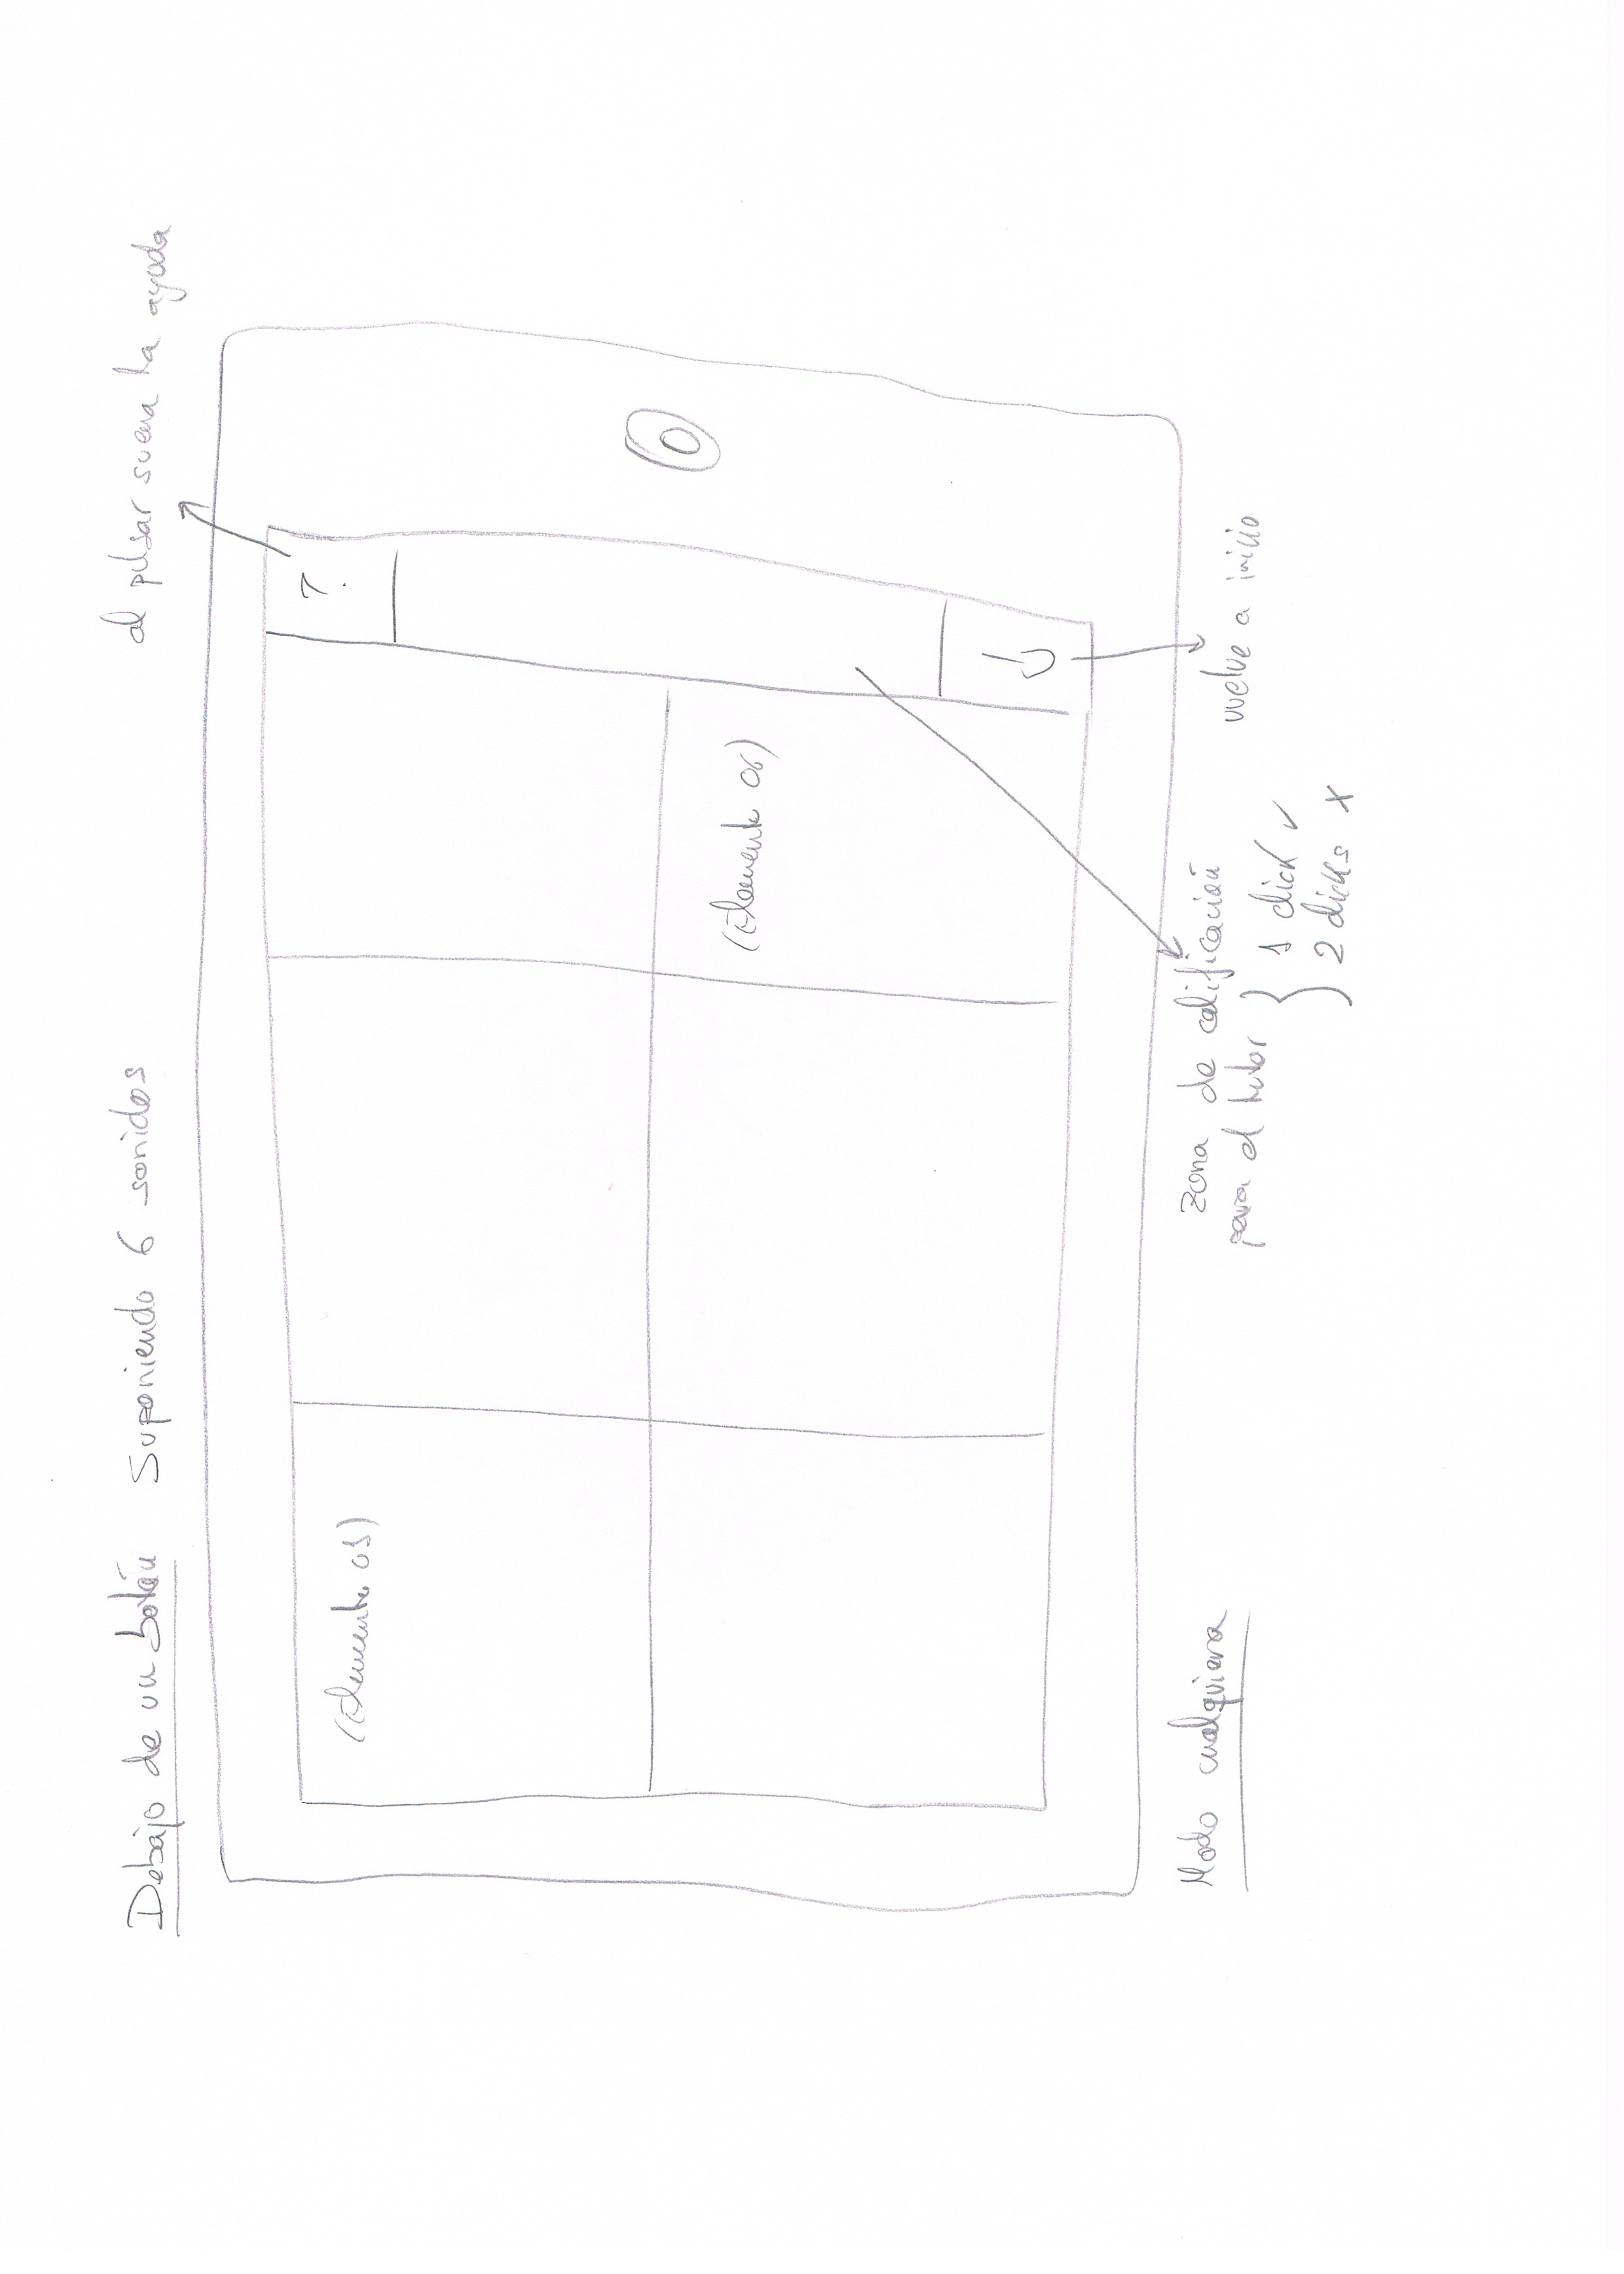 Debajo de un botón Suponiendo 6 sonidos
al pulsar suena la ayuda
?
(Elemento 01)
(Elemento 06)
Modo cualquiera
zona de calificación
para el tutor } 1 click ✓
2 clicks X
vuelve a inicio